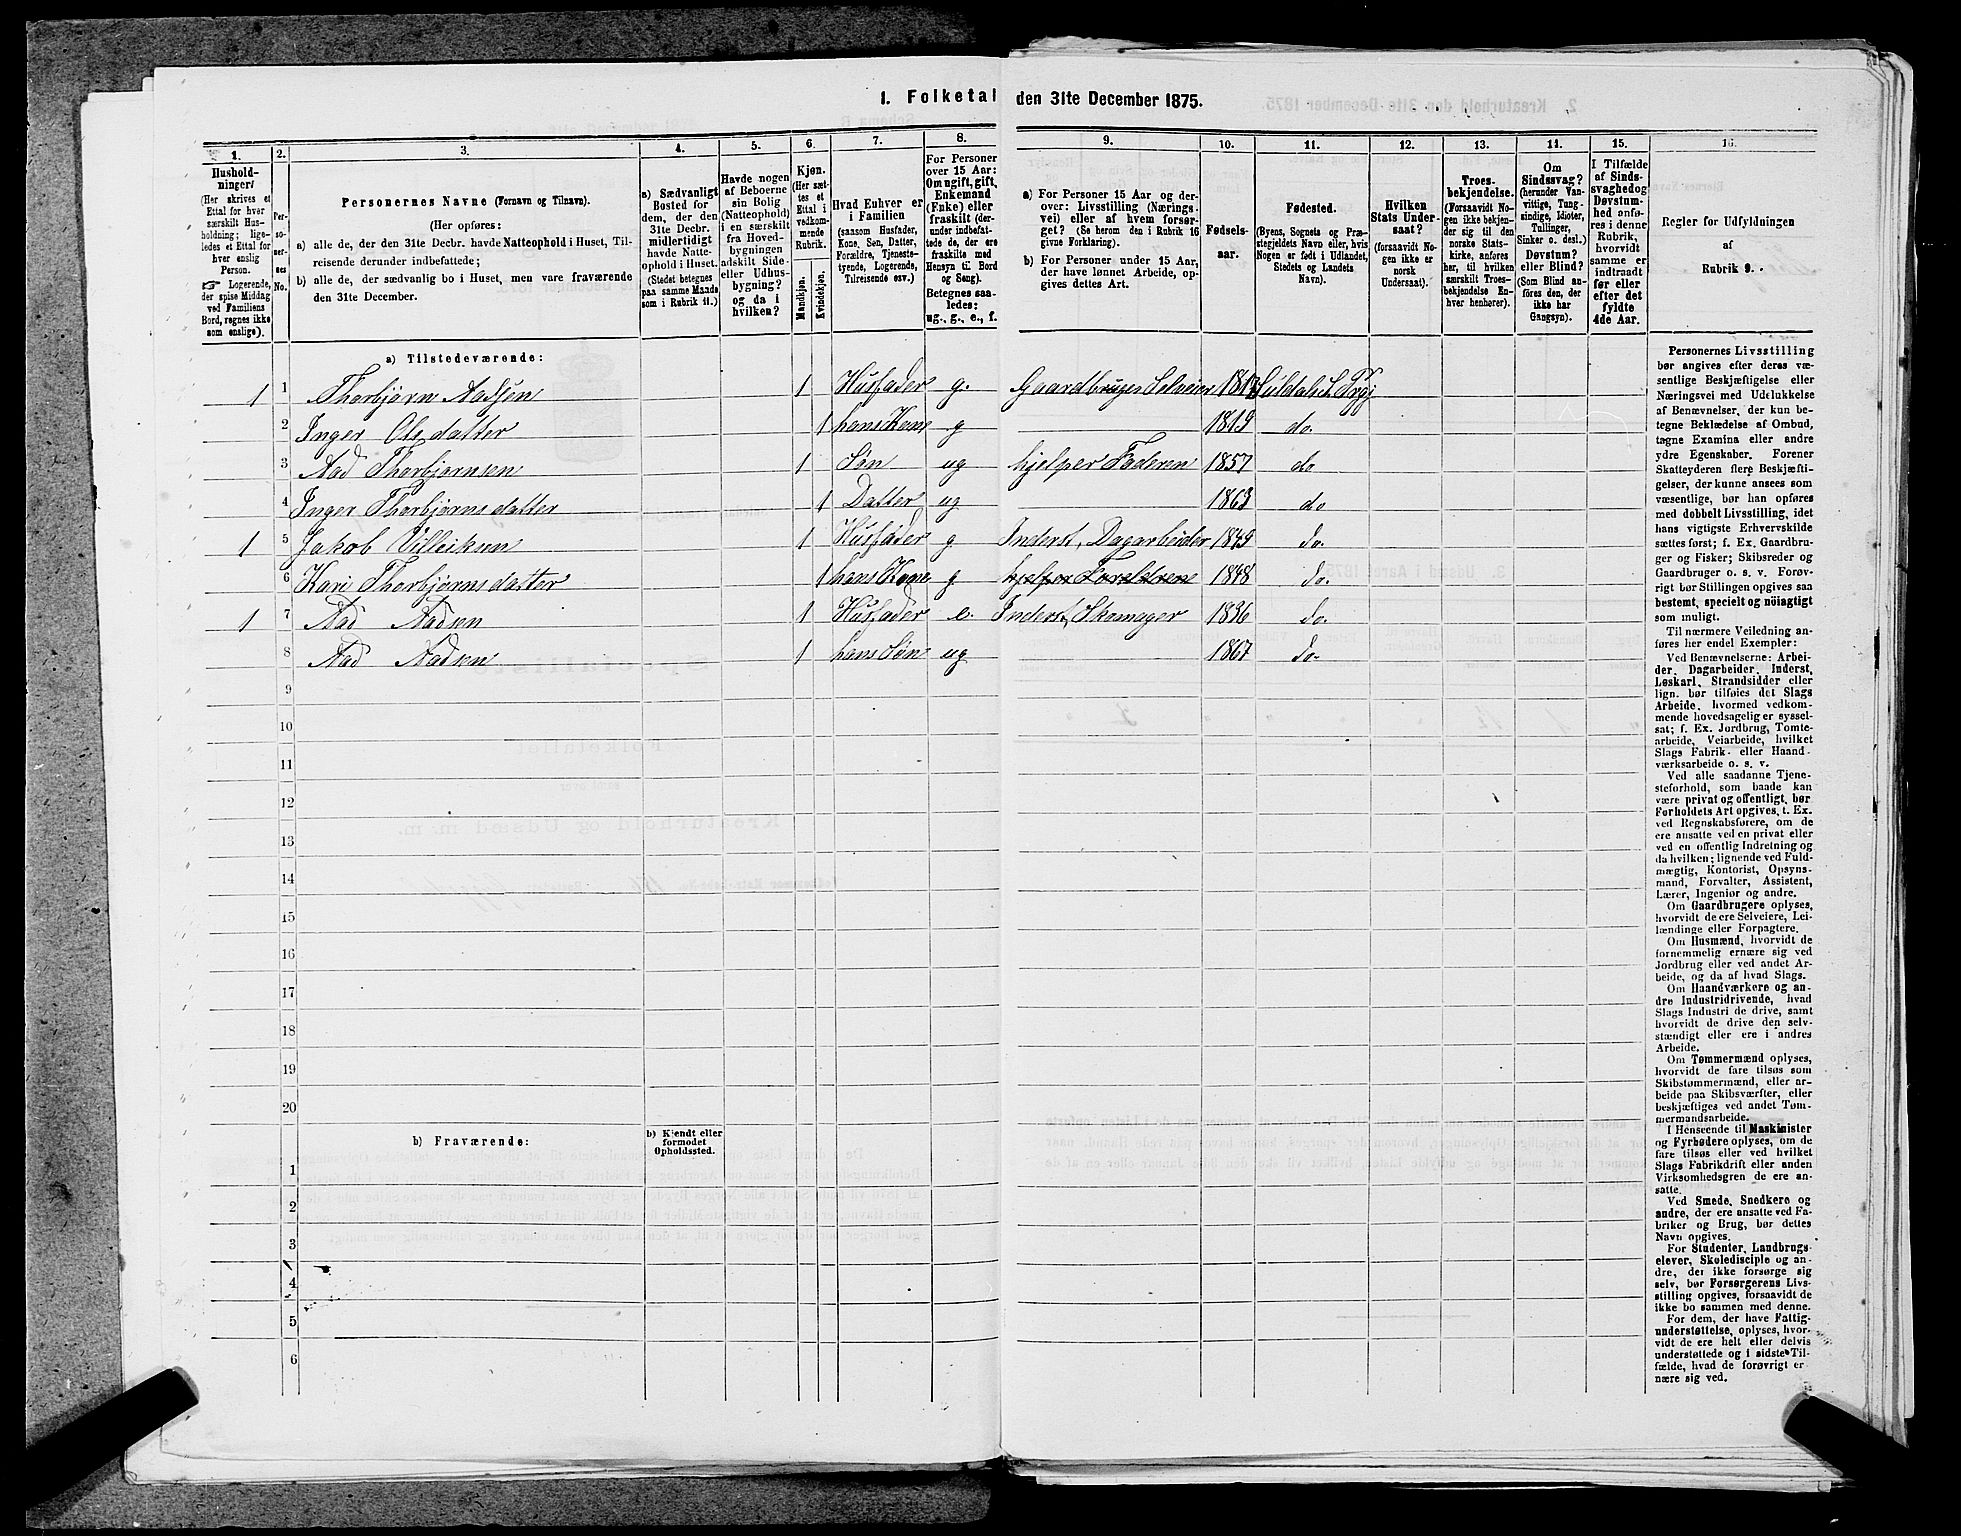 1. Folketal den 31te December 1875.
1.
2.
3.
4.
5.
6.
7.
8.
9.
10.
11.
12.
13.
14.
15.
16.
Husholdninger
(Her skrives et Ettal for hver særskilt Husholdning; ligeledes et Ettal for hver enslig Person.
☞ Logerende, der spise Middag ved Familiens Bord, regnes ikke som enslige).
Personernes No.
Personernes Navne (Fornavn og Tilnavn).
(Her opføres:
a) alle de, der den 31te Decbr. havde Natteophold i Huset, Tilreisende derunder indbefattede;
b) alle de, der sædvanlig bo i Huset, men vare fraværende den 31te December.
a) Sædvanligt Bosted for dem, der den 31te Decbr. midlertidigt havde Natteophold i Huset.
(Stedet betegnes paa samme Maade som i Rubrik 11.)
Havde nogen af Beboerne sin Bolig (Natteophold) i en særskilt fra Hovedbygningen adskilt Side- eller Udhusbygning? og da i hvilken?
Kjøn.
(Her sættes et Ettal i vedkommende Rubrik.
Mandkjøn.
Kvindekjøn.
Hvad Enhver er i Familien
(saasom Husfader, Kone, Søn, Datter, Forældre, Tjenestetyende, Logerende, Tilreisende osv.)
For Personer over 15 Aar: Om ugift, gift, Enkemand (Enke) eller fraskilt (derunder indbefattede de, der ere fraskilte med Hensyn til Bord og Seng).
Betegnes saaledes: ug., g., e., f.
a) For Personer 15 Aar og derover: Livsstilling (Næringsvei) eller af hvem forsørget? (Se herom den i Rubrik 16 givne Forklaring).
b) For Personer under 15 Aar, der have lønnet Arbeide, opgives dettes Art.
Fødselsaar.
Fødested.
(Byens, Sognets og Præstegjeldets Navn eller, hvis Nogen er født i Udlandet, Stedets og Landets Navn).
Hvilken Stats Undersaat?
(forsaavidt Nogen ikke er norsk Undersaat).
Troesbekjendelse.
(Forsaavidt Nogen ikke bekjender sig til den norske Statskirke, anføres her, til hvilken særskilt Troesbekjendelse Enhver henhører).
Om Sindssvag? (herunder Vanvittige, Tungsindige, Idioter, Sinker o. desl.) Døvstum? eller Blind? (Som Blind anføres den, der ikke har Gangsyn).
I Tilfælde af Sindssvaghed og Døvstumhed anføres i denne Rubrik, hvorvidt samme er indtraadt før eller efter det fyldte 4de Aar.
Regler for Udfyldningen af Rubrik 9.
a) Tilstedeværende:
1 1 Thorbjørn Aadsen 1 Husfader g. Gaardbruger Selveier 1817
2 Inger Olsdatter 1 hans Kone g 1819 do.
3 Aad Thorbjørnsen 1 Søn ug hjelper Faderen 1857 do
4 Inger Thorbjørnsdatter 1 Datter ug 1863 do
1 5 Jakob Villeiksen 1 Husfader g Inderst, Dagarbeider 1849 do.
6 Kari Thorbjørnsdatter 1 hans Kone g hjelper Forældrene 1848 do.
1 7 Aad Aadsen 1 Husfader e. Inderst, Skomager 1836 do.
8 Aad Aadsen 1 hans Søn ug 1867 do.
9
10
11
12
13
14
15
16
17
18
19
20
b) Fraværende:
b) Kjendt eller formodet Opholdssted.
1
2
3
4
5
6
Personernes Livsstilling
bør angives efter deres væ-
sentlige Beskjæftigelse eller
Næringsvei med Udelukkelse
af Benævnelser, der kun be-
tegne Beklædelse af Ombud,
tagne Examina eller andre
ydre Egenskaber. Forener
Skatteyderen flere Beskjæfti-
gelser, der kunne ansees som
væsentlige, bør han opføres
med dobbelt Livsstilling, idet
hans vigtigste Erhvervskilde
sættes først; f. Ex. Gaardbru-
ger og Fisker; Skibsreder og
Gaardbruger o. s. v. Forøv-
rigt bør Stillingen opgives saa
bestemt, specielt og nöiagtigt
som muligt.
Til nærmere Veiledning an-
føres her endel Exempler:
Ved Benævnelserne: Arbei-
der, Dagarbeider, Inderst,
Løskarl, Strandsidder eller
lign. bør tilføies det Slags
Arbeide, hvormed vedkom-
mende hovedsagelig er syssel-
sat; f. Ex. Jordbrug, Tomte-
arbeide, Veiarbeide, hvilket
Slags Fabrik- eller Haand-
værksarbeide o. s. v.
Ved alle saadanne Tjene-
steforhold, som baade kan
være privat og offentligt, bør
Forholdets Art opgives, t. Ex.
ved Regnskabsførere, om de
ere ansatte ved en privat eller
ved en offentlig Indretning og
da hvilken; lignende ved Fuld-
mægtig, Kontorist, Opsyns-
mand, Forvalter, Assistent,
Lærer, Ingeniør og andre.
Om Gaardbrugere oplyses,
hvorvidt de ere Selveiere, Lei-
lændinge eller Forpagtere.
Om Husmænd, hvorvidt de
fornemmelig ernære sig ved
Jordbrug eller ved andet Ar-
beide, og da af hvad Slags.
Om Haandværkere og an-
dre Industridrivende, hvad
Slags Industri de drive, samt
hvorvidt de drive den selv-
stændigt eller ere i andres
Arbeide.
Om Tømmermænd oplyses,
hvorvidt de fare tilsøs som
Skibstømmermænd, eller ar-
beide paa Skibsværfter, eller
beskjæftiges ved andet Tøm-
mermandsarbeide.
I Henseende til Maskinister
og Fyrbødere oplyses, om de
fare tilsøs eller ved hvilket
Slags Fabrikdrift eller anden
Virksomhedsgren de ere an-
satte.
Ved Smede, Snedkere og
andre, der ere ansatte ved Fa-
briker og Brug, bør dettes
Navn opgives.
For Studenter, Landbrugs-
elever, Skoledisciple og an-
dre, der ikke forsørge sig
selv, bør Forsørgerens Livs-
stilling opgives, forsaavidt de
ikke bo sammen med denne.
For dem, der have Fattig-
understøttelse, oplyses, hvor-
vidt de ere helt eller delvis
understøttede og i sidste Til-
fælde, hvad de forøvrigt er
nære sig ved.